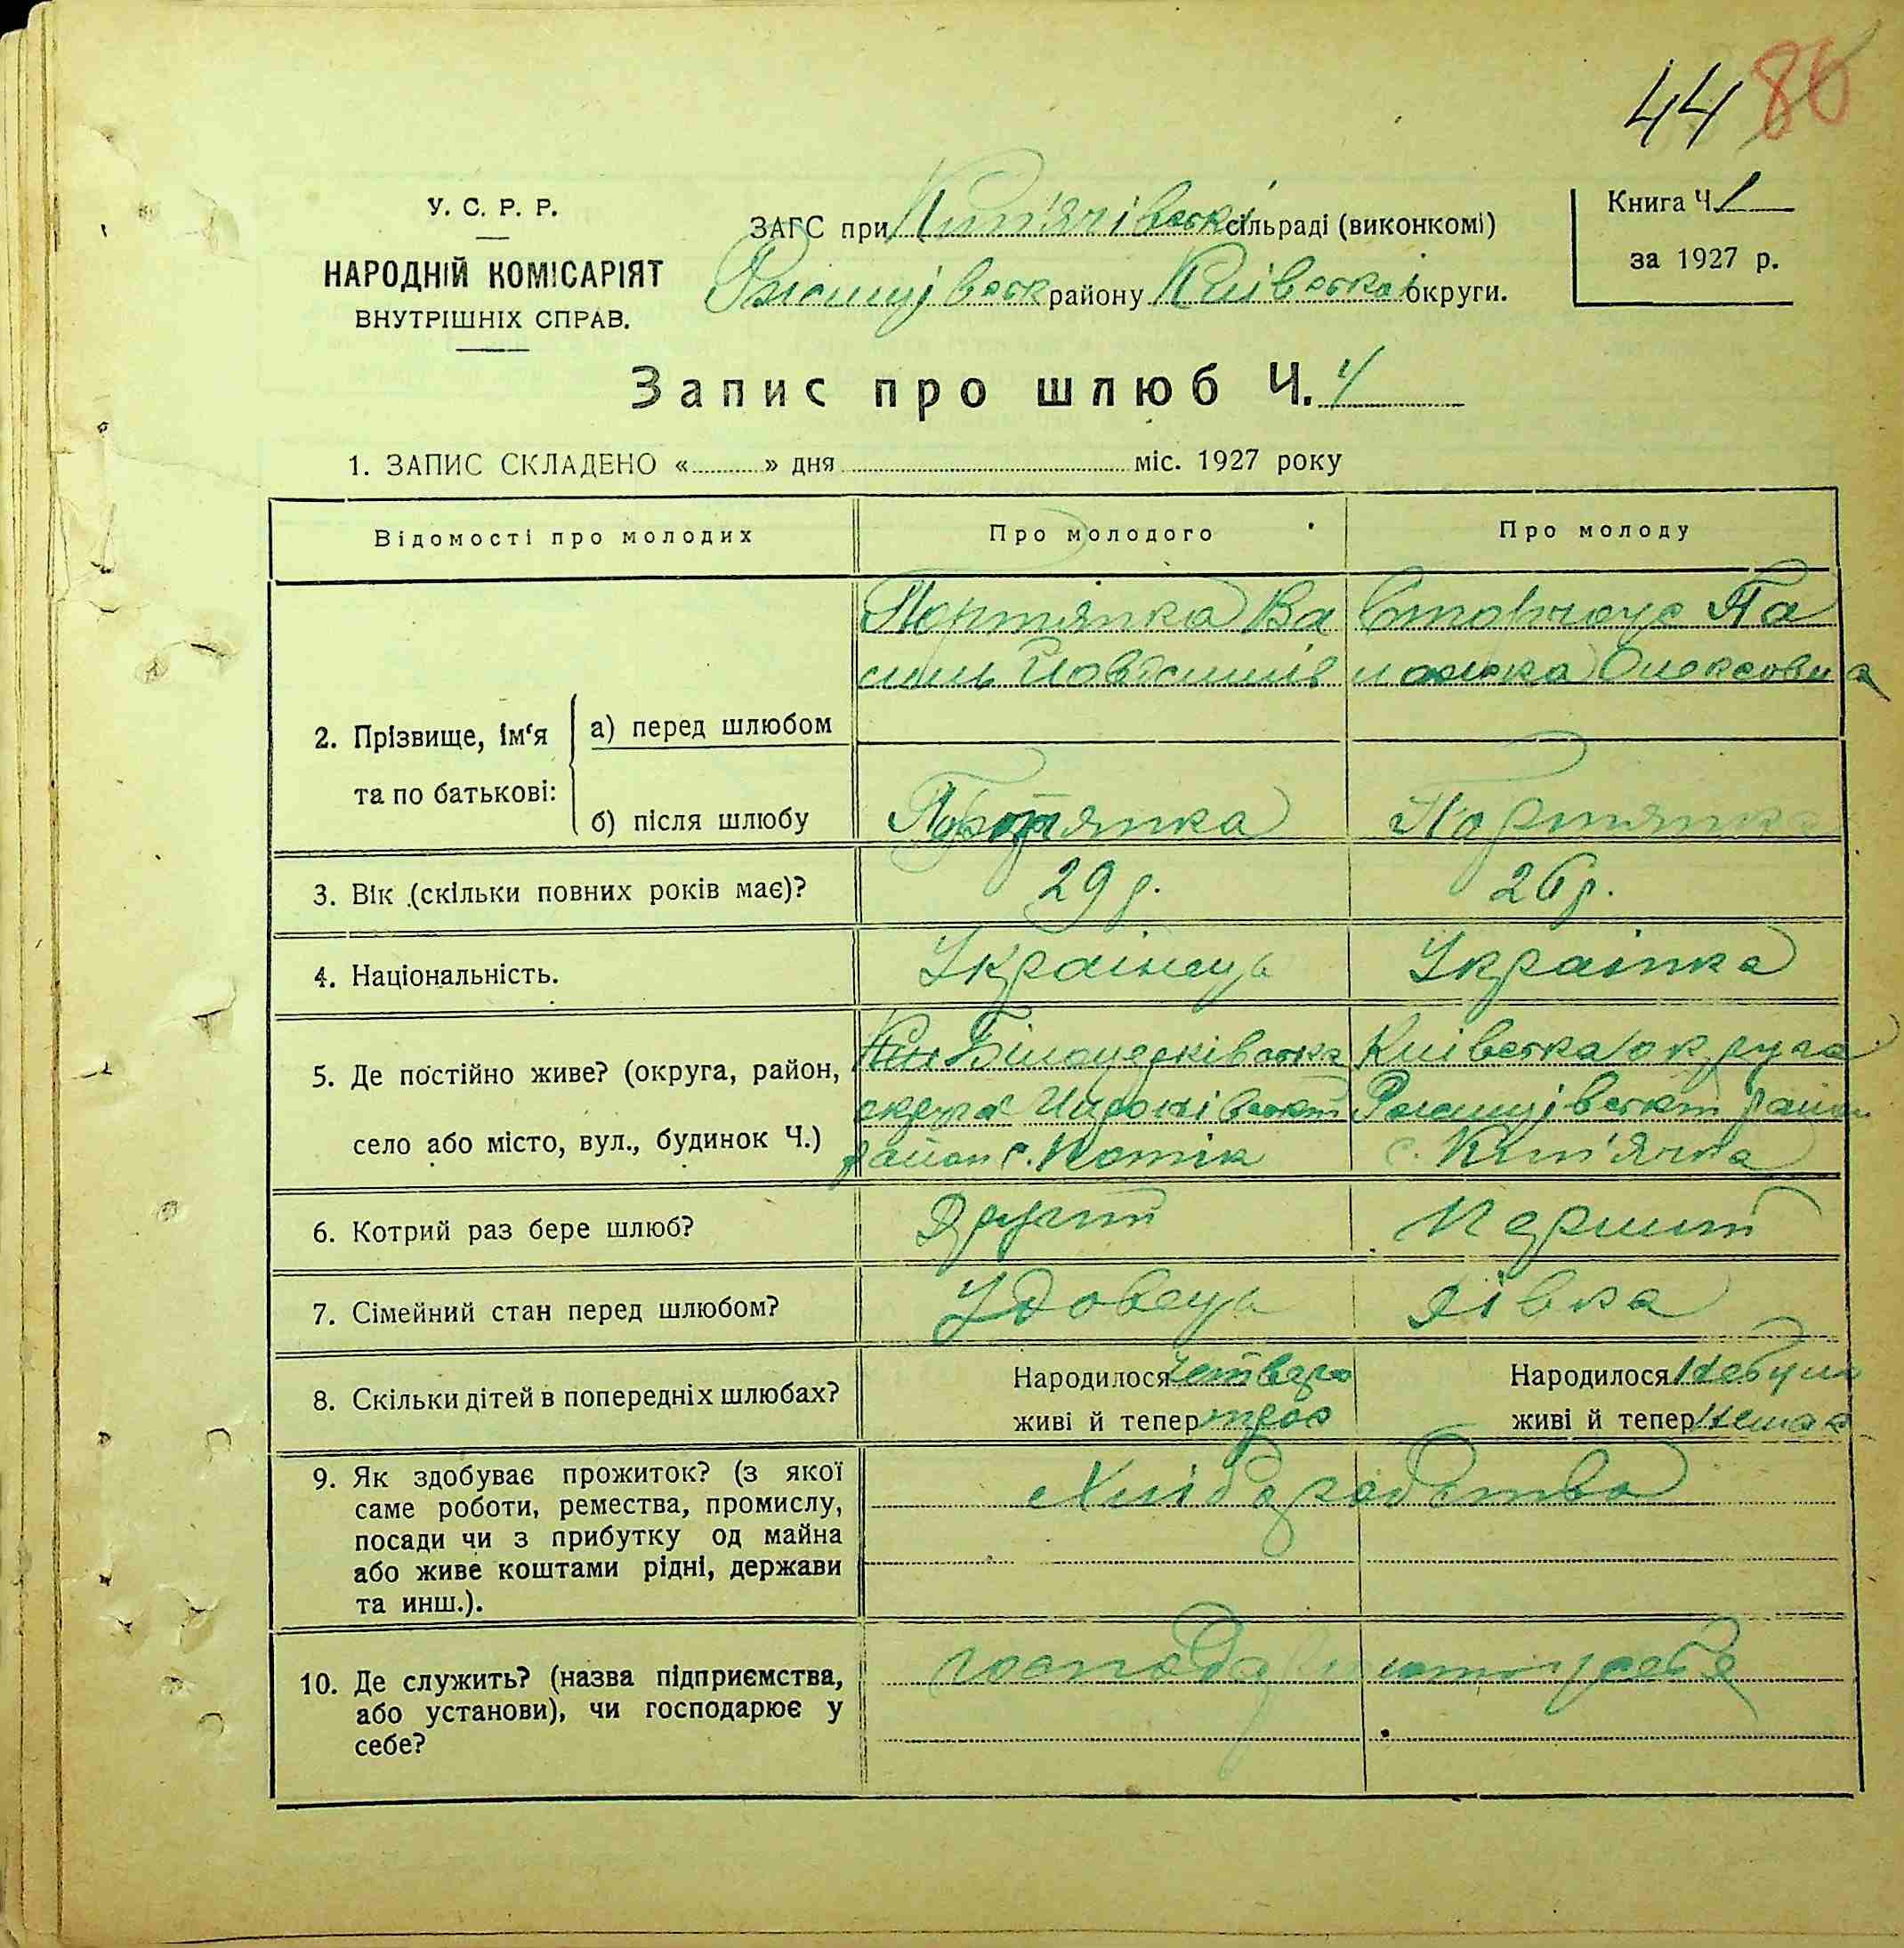 44 86
У. С. Р. Р.
НАРОДНІЙ КОМІСАРІЯТ
ВНУТРІШНІХ СПРАВ.
ЗАГС при Кип'ячівській сільраді (виконкомі)
Ржищівськ району Київської округи.
Книга Ч. 1
за 1927 р.
Запис про шлюб Ч. 4
1. ЗАПИС СКЛАДЕНО «...» дня ... міс. 1927 року
Відомості про молодих
Про молодого
Про молоду
2. Прізвище, ім‘я та по батькові:
а) перед шлюбом
Портянка Ва
силь
Сторчоус Па
лажка Олексовна
б) після шлюбу
Портянка
Портянка
3. Вік (скільки повних років має)?
29 р.
26 р.
4. Національність.
Українець
Українка
5. Де постійно живе? (округа, район,
село або місто, вул., будинок Ч.)
Білоцерківська
округа
район с. Потік
Київська округа
Ржищівський район
с. Кип'ячка
6. Котрий раз бере шлюб?
Другий
Перший
7. Сімейний стан перед шлюбом?
Удовець
Дівка
8. Скільки дітей в попередніх шлюбах?
Народилося четверо
живі й тепер троє
Народилося Небули
живі й тепер Немає
9. Як здобуває прожиток? (з якої
саме роботи, ремества, промислу,
посади чи з прибутку од майна
або живе коштами рідні, держави
та инш.).
Хліборобство
10. Де служить? (назва підприємства,
або установи), чи господарює у
себе?